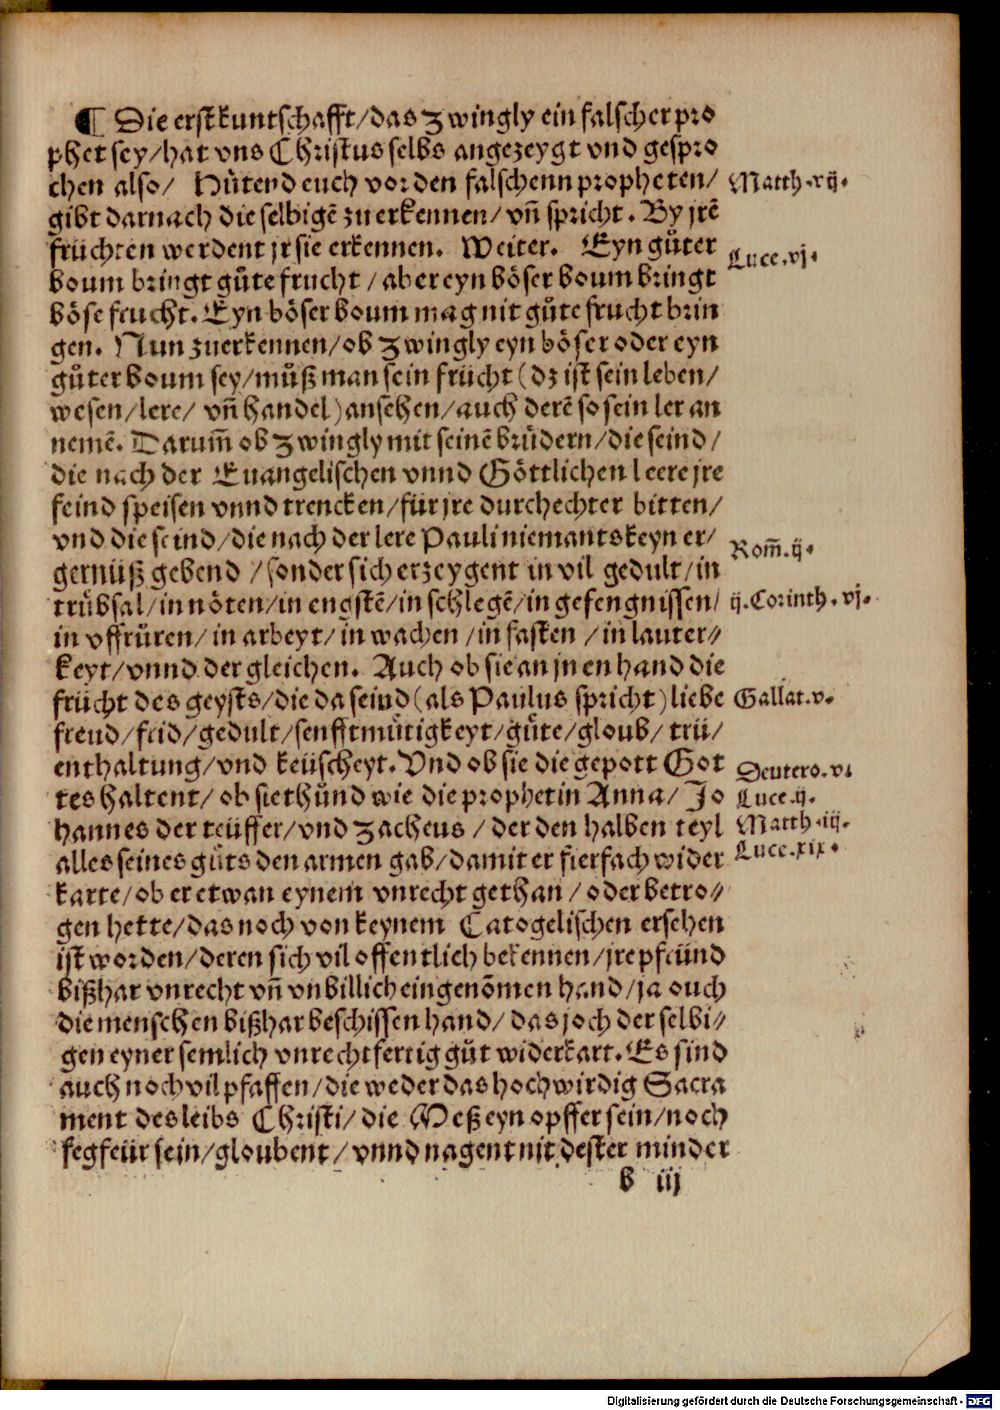 ¶ Die erst kuntschafft/das Zwingly ein falscher pro
phet sey/hat vns Christus selbs angezeygt vnd gespro
chen also/ Hůtend euch vor den falschenn propheten/
Matth.vij.
gibt darnach die selbigē zu erkennen/vn̄ spricht. By jrē
früchten werdent jr sie erkennen. Weiter. Eyn gůter
Luce.vj.
boum bringt gůte frucht/aber eyn böser boum bringt
böse frucht. Eyn böser boum mag nit gůte frucht brin
gen. Nun zuerkennen/ob Zwingly eyn böser oder eyn
gůter boum sey/můß man sein frücht (dz ist sein leben/
wesen/lere/ vn̄ handel) ansehen/auch derē so sein ler an
nemē. Darum̄ ob Zwingly mit seinē brüdern/die seind/
die nach der Euangelischen vnnd Göttlichen leere jre
feind speisen vnnd trencken/für jre durchechter bitten/
vnd die seind/die nach der lere Pauli niemants keyn er/
Rom̄.ij.
gernüß gebend/sonder sich erzeygent in vil gedult/in
trůbsal/in nöten/in engstē/in schlegē/in gefengnissen/
ij.Corinth.vj.
in vffrůren/in arbeyt/in wachen/in fasten/in lauter⸗
keyt/vnnd der gleichen. Auch ob sie an jnen hand die
frücht des geysts/die da seind (als Paulus spricht) liebe
Gallat.v.
freud/frid/gedult/senfftmůtigkeyt/gůte/gloub/trü/
enthaltung/vnd keüscheyt. Vnd ob sie die gepott Got
Deutero.vi
tes haltent/ob sie thůnd wie die prophetin Anna/Jo
Luce.ij.
hannes der teüffer/vnd Zacheus/der den halben teyl
Matth.iij.
alles seines gůts den armen gab/damit er fierfach wider
Luce.xix.
karte/ob er etwan eynem vnrecht gethan/oder betro⸗
gen hette/das noch von keynem Catogelischen ersehen
ist worden/deren sich vil offentlich bekennen/jre pfeünd
bißhar vnrecht vn̄ vnbillich eingenōmen hand/ja ouch
die menschen bißhar beschissen hand/das joch der selbi⸗
gen eyner semlich vnrechtfertig gůt widerkart. Es sind
auch noch vil pfaffen/die weder das hochwirdig Sacra
ment des leibs Christi/die Meß eyn opffer sein/noch
fegfeür sein/gloubent/vnnd nagent nit dester minder
b iij
Digitalisierung gefördert durch die Deutsche Forschungsgemeinschaft - DFG